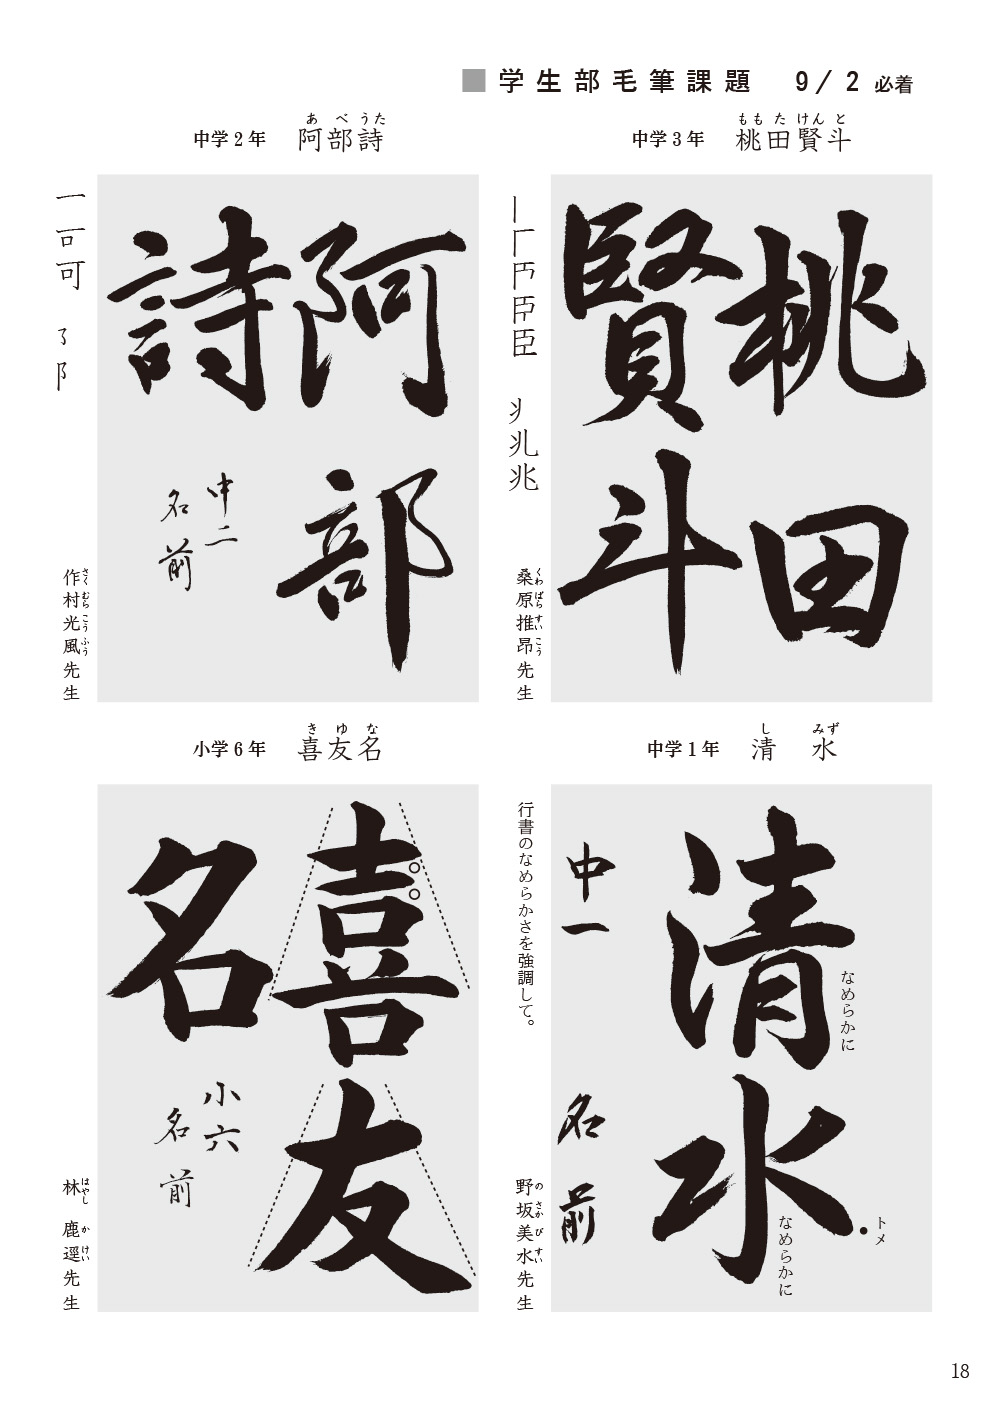 ■学生部毛筆課題 9/2 必着
中学3年 桃田賢斗
ももたけんと
桃田
賢斗
丨 厂 臣 臣
兆
桑原推昂先生
くわばらすいこう
中学2年 阿部詩
あべうた
阿部
詩
中二
名前
一 可
阝
作村光風先生
さくむらこうふう
中学1年 清水
しみず
清水
なめらかに
なめらかに
トメ
中一
名前
行書のなめらかさを強調して。
野坂美水先生
のさかびすい
小学6年 喜友名
きゆな
喜友
名
小六
名前
林鹿逕先生
はやしかけい
18